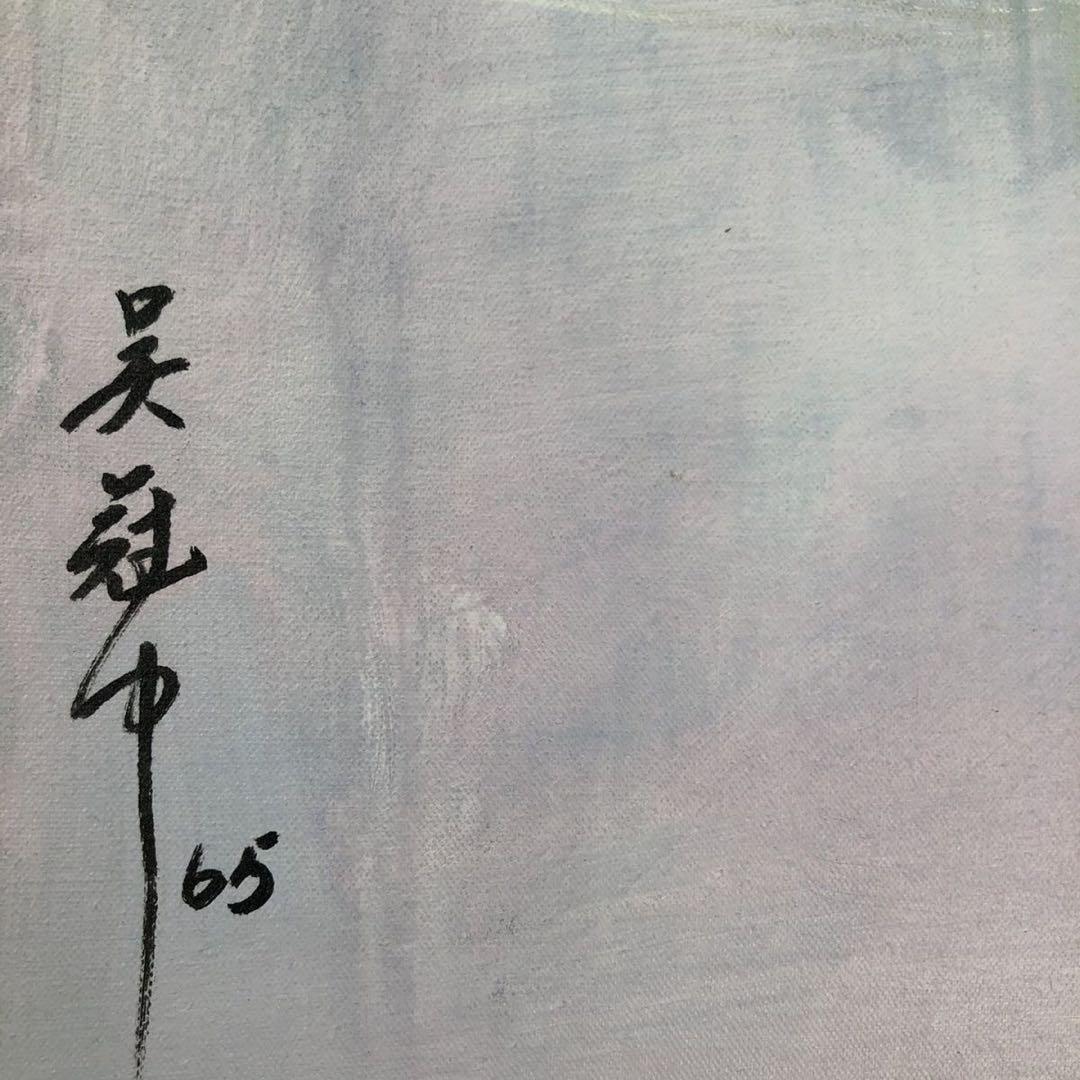 吴冠中
65